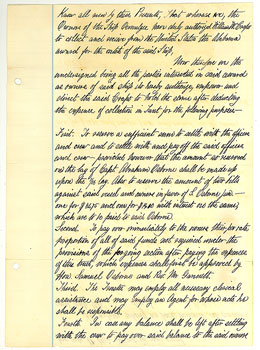 Know all men by these Presents, that whereas we, the
Owners of the Ship Ocmulgee have duly authorized William H.
to collect and receive from the United States the Alabama
award for the credit of the said Ship,
Now therefore we the
undersigned being all the parties interested in said award
as owners of said ship do hereby authorize, empower and
direct the said to hold the same after deducting
the expense of collection in trust for the following purposes
First. To reserve a sufficient sum to settle with the officers
and crew and to settle with and pay off the said officers
and crew provided however that the amount so reserved
as the lay of Capt Abraham Osborn shall be made up
upon the lay. Also to reserve the amount of two bills
against said vessel and owners in favor of S. Osborn jun
one for and one for with interest on the same,
which are to be paid to said Osborn.
Second. To pay over immediately to the owners their pro rata
proportion of all of said funds not required under the
provisions of the foregoing section after paying the expenses
of this trust, which expenses shall first be approved by
Hon. Samuel Osborn and
Third. The Trustee may employ all necessary clerical
assistance and may employ an agent for whose acts he
shall be responsible.
Fourth. In case any balance shall be left after settling
with the crew to pay over said balance to the said owners